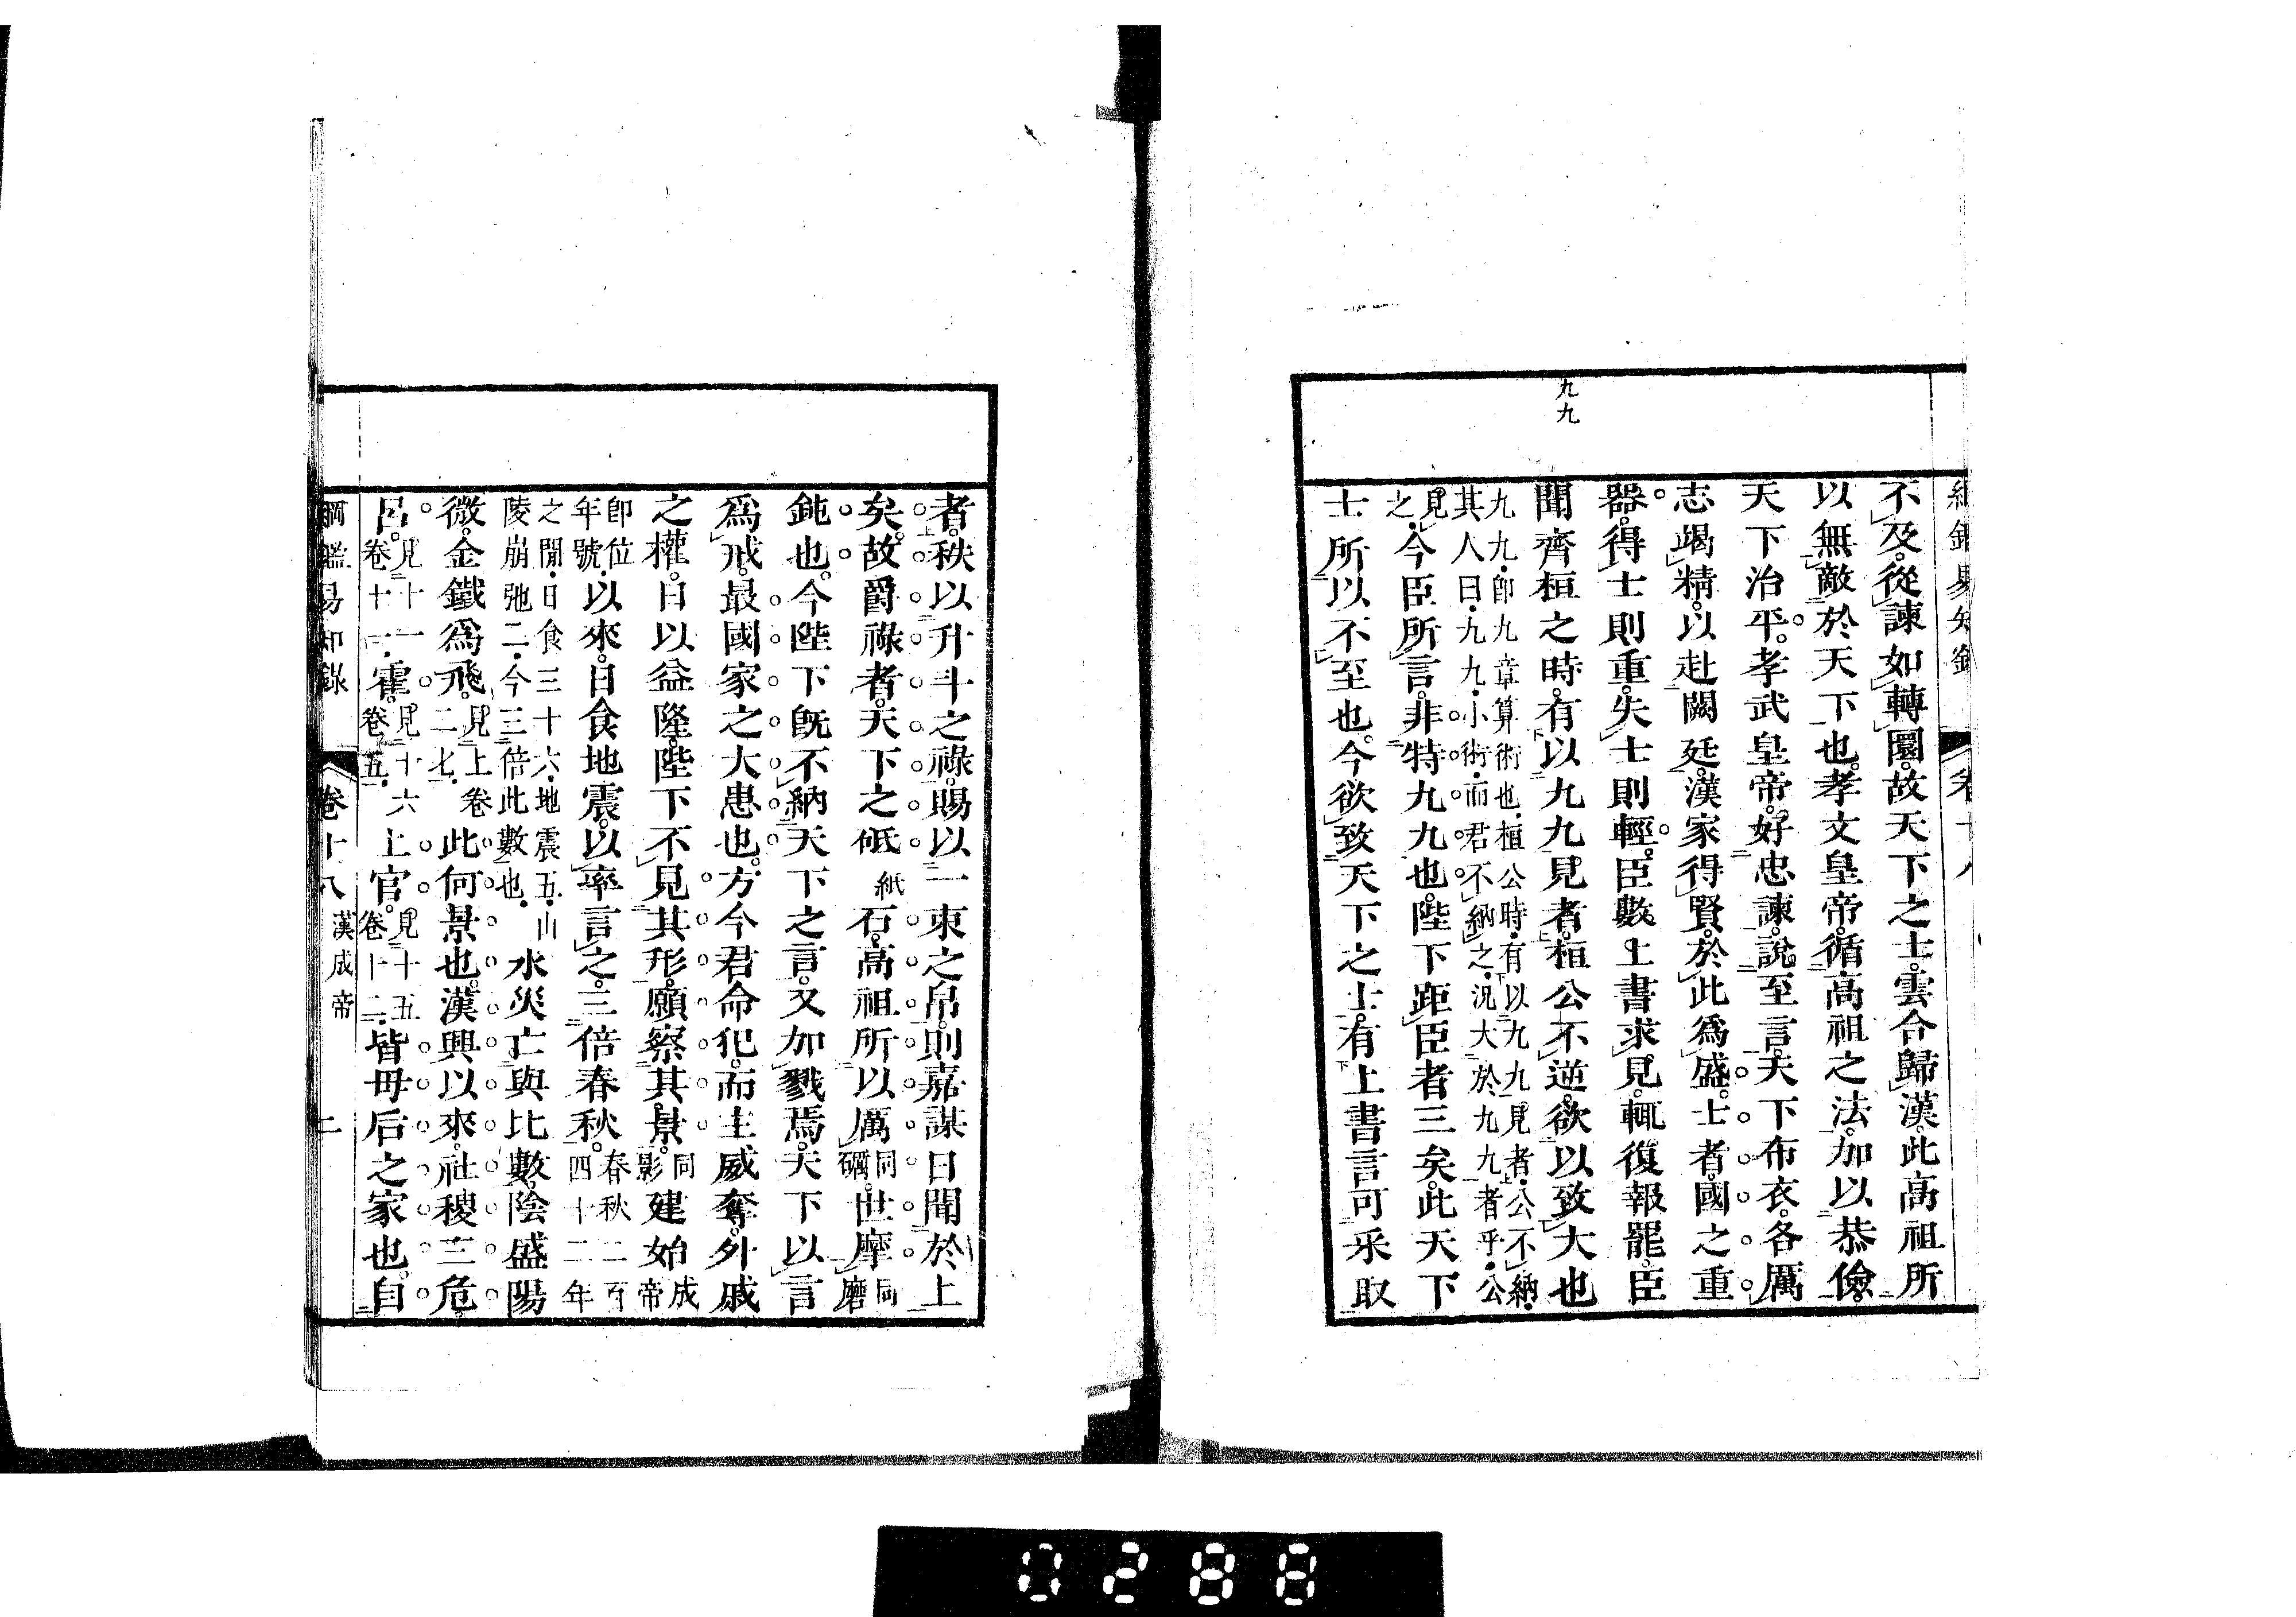 九九
不及從諫如轉圜。故天下之士。雲合歸漢。此高祖所
以無敵於天下也。孝文皇帝。循高祖之法。加以恭儉。
天下治平。孝武皇帝。好忠諫。說至言。天下布衣。各厲
志竭精。以赴闕廷。漢家得賢。於此爲盛。士者。國之重
器。得士則重。失士則輕。臣數上書求見。輒復報罷。臣
聞齊桓之時。有以九九見者。桓公不逆。欲以致大也
九九。卽九章算術也。桓公時。有以九九見者。公不納。
其人曰。九九。小術。而君不納之。況大於九九者乎。公
見之。今臣所言。非特九九也。陛下距臣者三矣。此天下
士所以不至也。今欲致天下之士。有上書言可采取
者。秩以升斗之祿。賜以一束之帛。則嘉謀日聞於上
矣。故爵祿者。天下之砥紙石。高祖所以厲同礪。世摩同磨
鈍也。今陛下旣不納天下之言。又加戮焉。天下以言
爲戒。最國家之大患也。方今君命犯。而主威奪。外戚
之權。日以益隆。陛下不見其形。願察其景。同影建始成帝
卽位年號。以來。日食地震。以率言之。三倍春秋。春秋二百四十二年
之閒。日食三十六。地震五。山陵崩弛二。今三倍此數也。水災亡與比數。陰盛陽
微。金鐵爲飛。見上卷二七。此何景也。漢興以來。社稷三危。
呂。見十一卷十一。霍。見十六卷五。上官。見十五卷十二。皆母后之家也。自
綱鑑易知錄 卷十八 漢成帝 二
0288